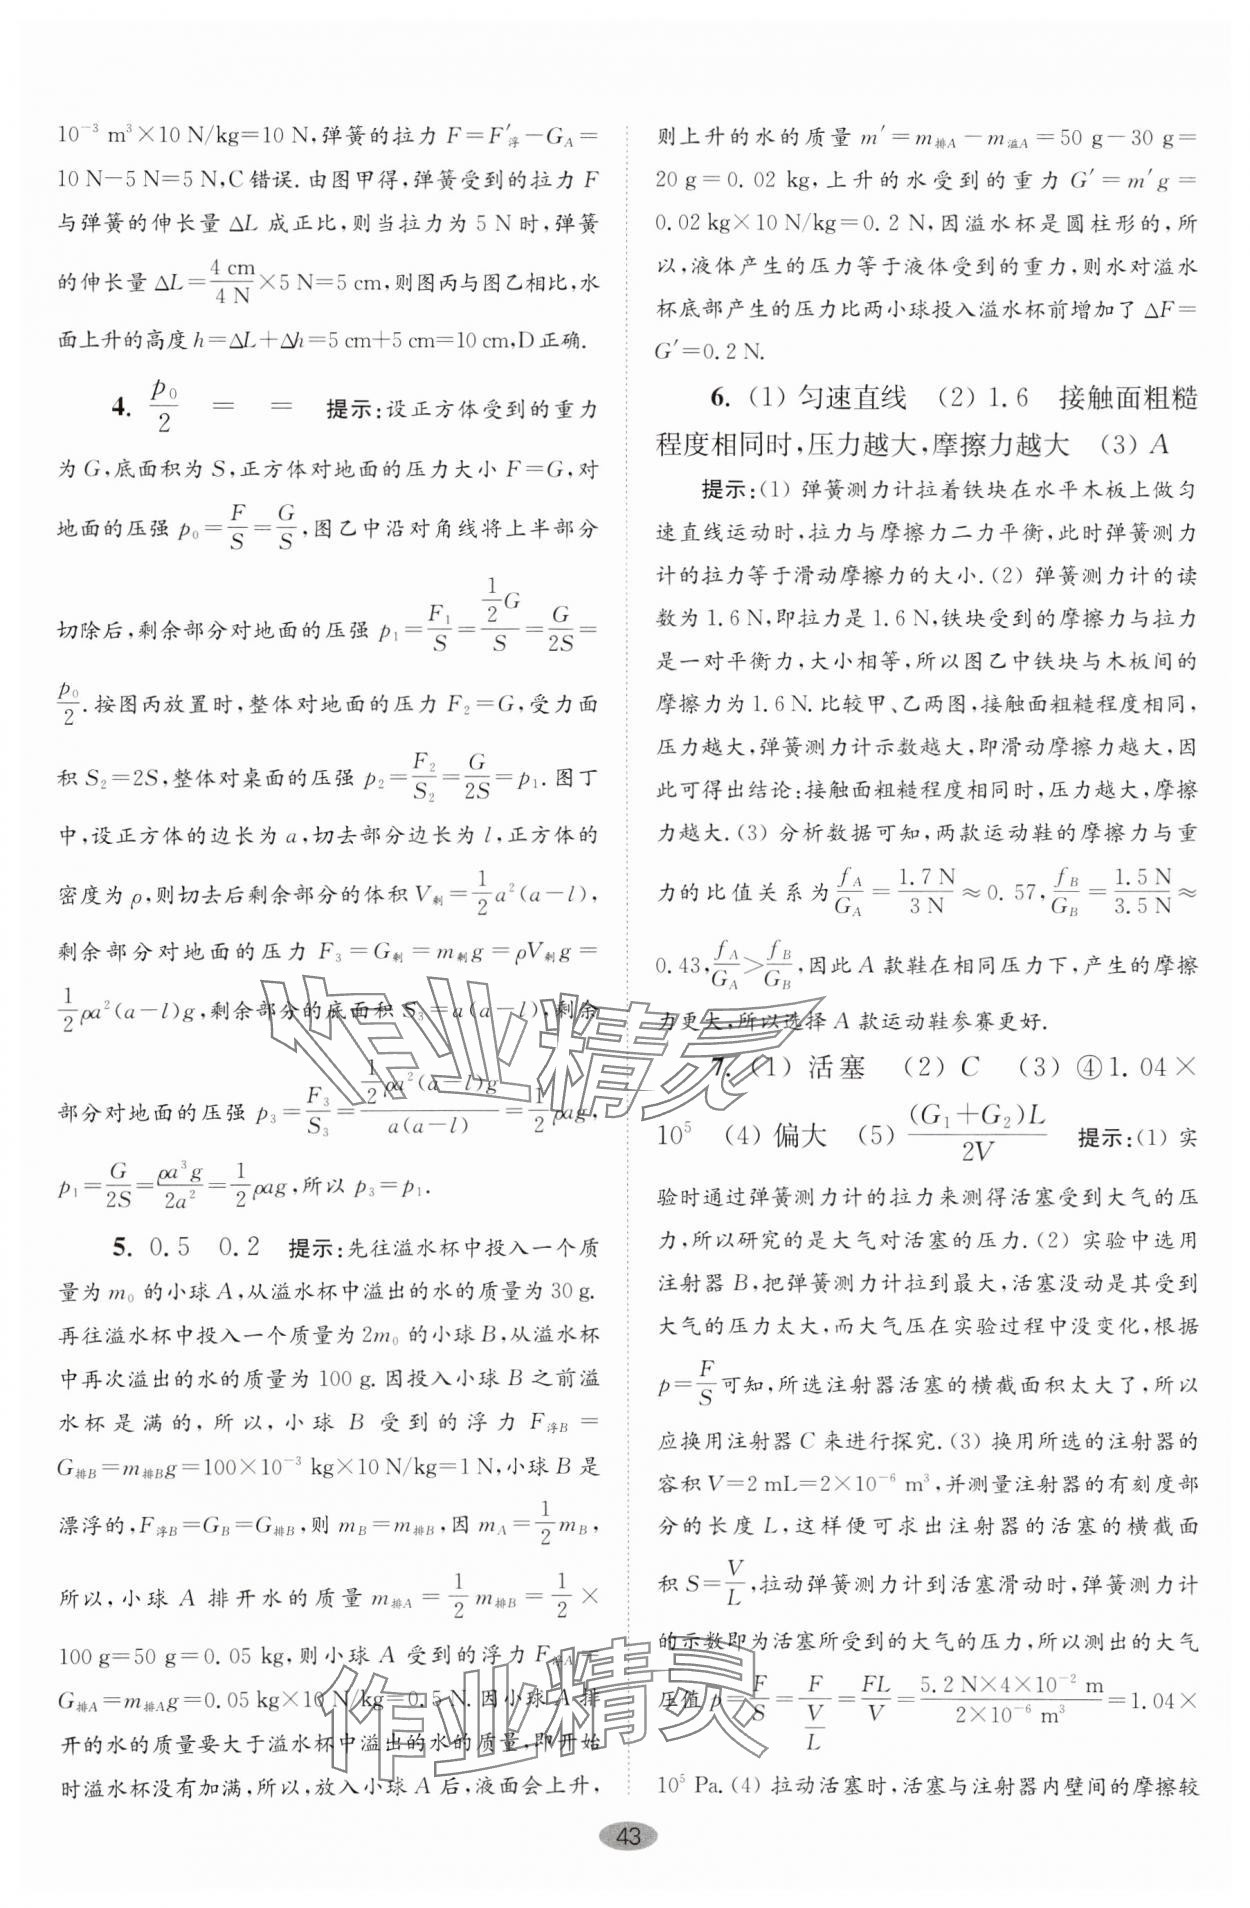 10⁻³ m³×10 N/kg=10 N,弹簧的拉力 F=F′浮−G_A=
10 N−5 N=5 N,C 错误. 由图甲得,弹簧受到的拉力 F
与弹簧的伸长量 ΔL 成正比,则当拉力为 5 N 时,弹簧
的伸长量 ΔL=4 cm/4 N×5 N=5 cm,则图丙与图乙相比,水
面上升的高度 h=ΔL+Δh=5 cm+5 cm=10 cm,D 正确.
4. p₀/2 = = 提示:设正方体受到的重力
为 G,底面积为 S,正方体对地面的压力大小 F=G,对
地面的压强 p₀=F/S=G/S,图乙中沿对角线将上半部分
切除后,剩余部分对地面的压强 p₁=F₁/S=(1/2 G)/S=G/2S=
p₀/2.按图丙放置时,整体对地面的压力 F₂=G,受力面
积 S₂=2S,整体对桌面的压强 p₂=F₂/S₂=G/2S=p₁.图丁
中,设正方体的边长为 a,切去部分边长为 l,正方体的
密度为 ρ,则切去后剩余部分的体积 V剩=1/2 a²(a−l),
剩余部分对地面的压力 F₃=G剩=m剩g=ρV剩g=
1/2 ρa²(a−l)g,剩余部分的底面积 S₃=a(a−l),剩余
部分对地面的压强 p₃=F₃/S₃=(1/2 ρa²(a−l)g)/(a(a−l))=1/2 ρag,
p₁=G/2S=ρa³g/2a²=1/2 ρag,所以 p₃=p₁.
5. 0.5 0.2 提示:先往溢水杯中投入一个质
量为 m₀ 的小球 A,从溢水杯中溢出的水的质量为 30 g.
再往溢水杯中投入一个质量为 2m₀ 的小球 B,从溢水杯
中再次溢出的水的质量为 100 g. 因投入小球 B 之前溢
水杯是满的,所以,小球 B 受到的浮力 F浮B=
G排B=m排Bg=100×10⁻³ kg×10 N/kg=1 N,小球 B 是
漂浮的,F浮B=G_B=G排B,则 m_B=m排B,因 m_A=1/2 m_B,
所以,小球 A 排开水的质量 m排A=1/2 m排B=1/2×
100 g=50 g=0.05 kg,则小球 A 受到的浮力 F浮A=
G排A=m排Ag=0.05 kg×10 N/kg=0.5 N. 因小球 A 排
开的水的质量要大于溢水杯中溢出的水的质量,即开始
时溢水杯没有加满,所以,放入小球 A 后,液面会上升,
则上升的水的质量 m′=m排A−m溢A=50 g−30 g=
20 g=0.02 kg,上升的水受到的重力 G′=m′g=
0.02 kg×10 N/kg=0.2 N,因溢水杯是圆柱形的,所
以,液体产生的压力等于液体受到的重力,则水对溢水
杯底部产生的压力比两小球投入溢水杯前增加了 ΔF=
G′=0.2 N.
6. (1) 匀速直线 (2) 1.6 接触面粗糙
程度相同时,压力越大,摩擦力越大 (3) A
提示:(1) 弹簧测力计拉着铁块在水平木板上做匀
速直线运动时,拉力与摩擦力二力平衡,此时弹簧测力
计的拉力等于滑动摩擦力的大小.(2) 弹簧测力计的读
数为 1.6 N,即拉力是 1.6 N,铁块受到的摩擦力与拉力
是一对平衡力,大小相等,所以图乙中铁块与木板间的
摩擦力为 1.6 N. 比较甲、乙两图,接触面粗糙程度相同,
压力越大,弹簧测力计示数越大,即滑动摩擦力越大,因
此可得出结论:接触面粗糙程度相同时,压力越大,摩擦
力越大.(3) 分析数据可知,两款运动鞋的摩擦力与重
力的比值关系为 f_A/G_A=1.7 N/3 N≈0.57,f_B/G_B=1.5 N/3.5 N≈
0.43,f_A/G_A>f_B/G_B,因此 A 款鞋在相同压力下,产生的摩擦
力更大,所以选择 A 款运动鞋参赛更好.
7. (1) 活塞 (2) C (3) ④1.04×
10⁵ (4) 偏大 (5) (G₁+G₂)L/2V 提示:(1) 实
验时通过弹簧测力计的拉力来测得活塞受到大气的压
力,所以研究的是大气对活塞的压力.(2) 实验中选用
注射器 B,把弹簧测力计拉到最大,活塞没动是其受到
大气的压力太大,而大气压在实验过程中没变化,根据
p=F/S可知,所选注射器活塞的横截面积太大了,所以
应换用注射器 C 来进行探究.(3) 换用所选的注射器的
容积 V=2 mL=2×10⁻⁶ m³,并测量注射器的有刻度部
分的长度 L,这样便可求出注射器的活塞的横截面
积 S=V/L,拉动弹簧测力计到活塞滑动时,弹簧测力计
的示数即为活塞所受到的大气的压力,所以测出的大气
压值 p=F/S=F/(V/L)=FL/V=(5.2 N×4×10⁻² m)/(2×10⁻⁶ m³)=1.04×
10⁵ Pa.(4) 拉动活塞时,活塞与注射器内壁间的摩擦较
作业精灵
作业精灵
43